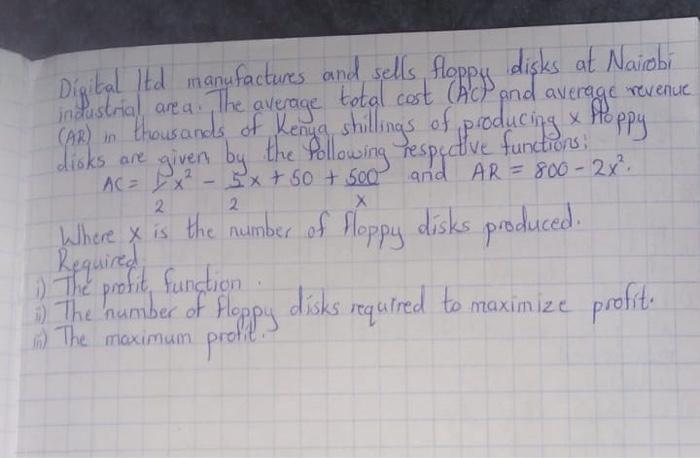 Digital ltd manufactures and sells floppy disks at Nairobi
industrial area. The average total cost (AC) and average revenue
(AR) in thousands of Kenya shillings of producing x floppy
disks are given by the following respective functions:
AC = x² - 5x + 50 + 500 and AR = 800 - 2x².
2 2 x
Where x is the number of floppy disks produced.
Required
i) The profit function.
ii) The number of floppy disks required to maximize profit.
iii) The maximum profit.